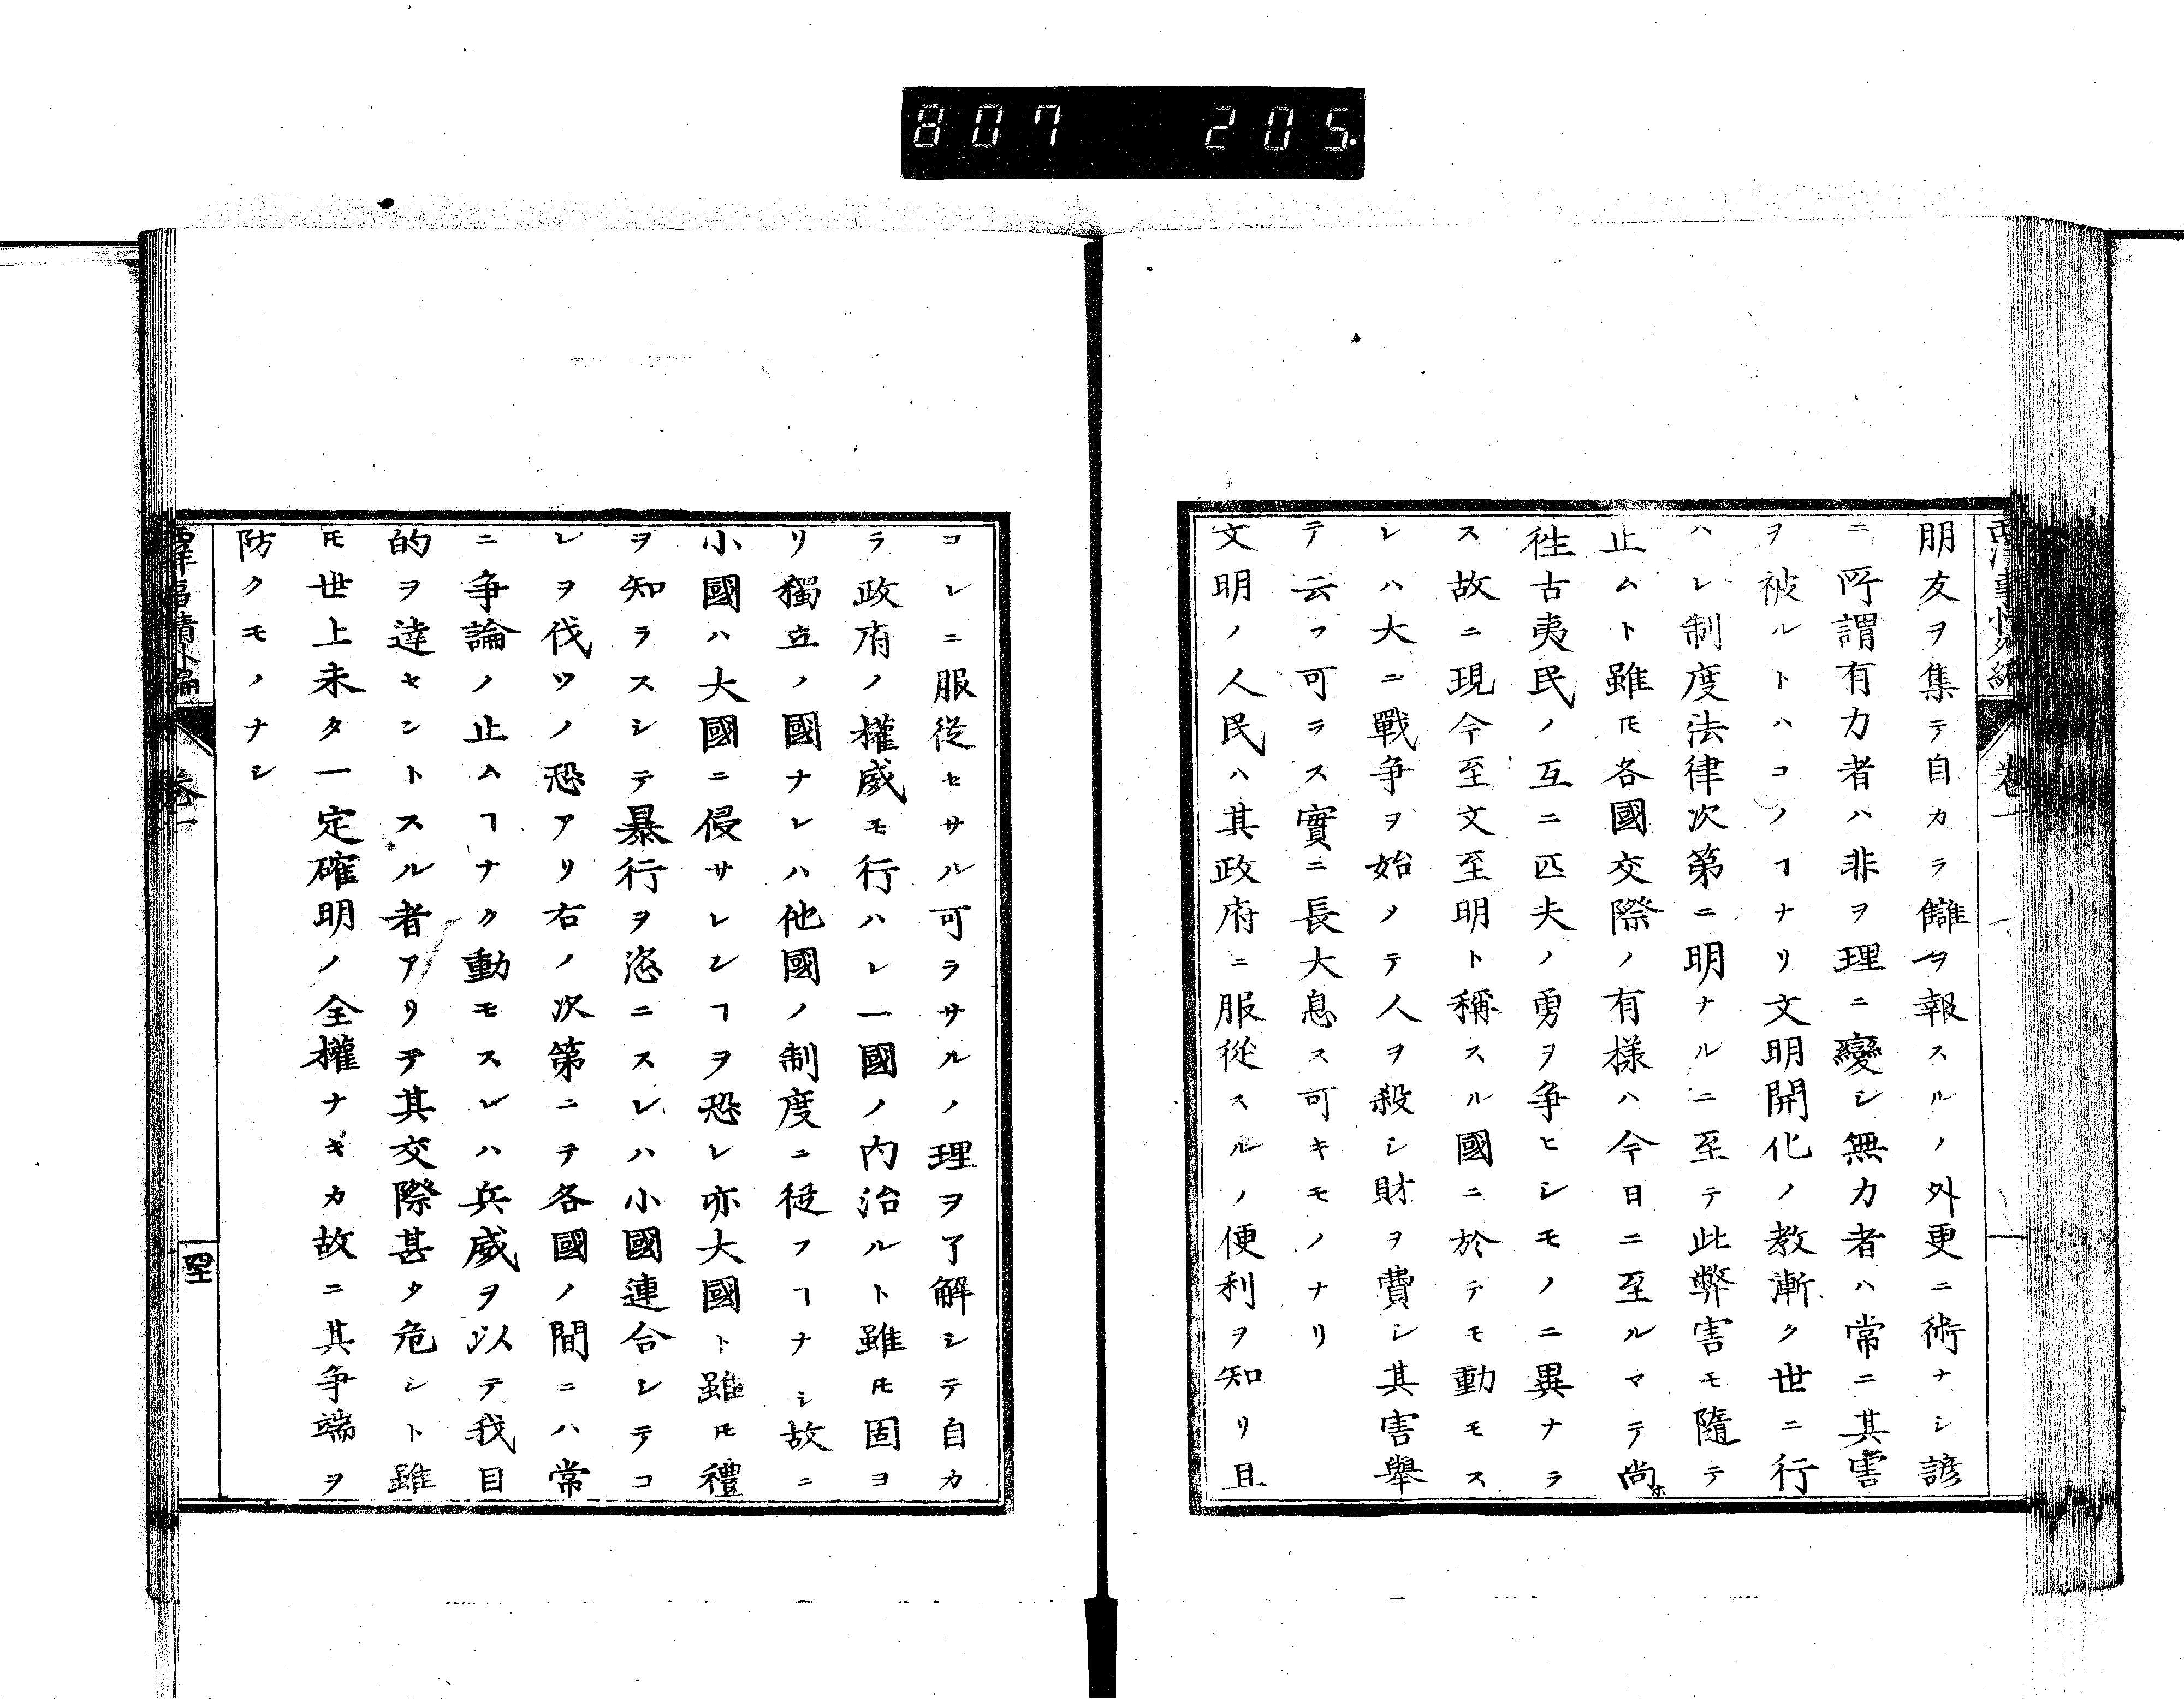 807 205.
西洋事情外編 卷一
朋友ヲ集テ自カラ讎ヲ報スルノ外更ニ術ナシ諺
ニ所謂有力者ハ非ヲ理ニ變シ無力者ハ常ニ其害
ヲ被ルトハコノヿナリ文明開化ノ教漸ク世ニ行
ハレ制度法律次第ニ明ナルニ至テ此弊害モ隨テ
止ムト雖𪜈各國交際ノ有樣ハ今日ニ至ルマテ尚ホ
徃古夷民ノ互ニ匹夫ノ勇ヲ争ヒシモノニ異ナラ
ス故ニ現今至文至明ト稱スル國ニ於テモ動モス
レハ大ニ戰争ヲ始メテ人ヲ殺シ財ヲ費シ其害舉
テ云フ可ラス實ニ長大息ス可キモノナリ
文明ノ人民ハ其政府ニ服從スルノ便利ヲ知リ且
コレニ服從セサル可ラサルノ理ヲ了解シテ自カ
ラ政府ノ權威モ行ハレ一國ノ内治ルト雖𪜈固ヨ
リ獨立ノ國ナレハ他國ノ制度ニ從フヿナシ故ニ
小國ハ大國ニ侵サレンヿヲ恐レ亦大國ト雖𪜈禮
ヲ知ラスシテ暴行ヲ恣ニスレハ小國連合シテコ
レヲ伐ツノ恐アリ右ノ次第ニテ各國ノ間ニハ常
ニ争論ノ止ムヿナク動モスレハ兵威ヲ以テ我目
的ヲ達セントスル者アリテ其交際甚タ危シト雖
𪜈世上未タ一定確明ノ全權ナキカ故ニ其争端ヲ
防クモノナシ
西洋事情外編 卷一 四十